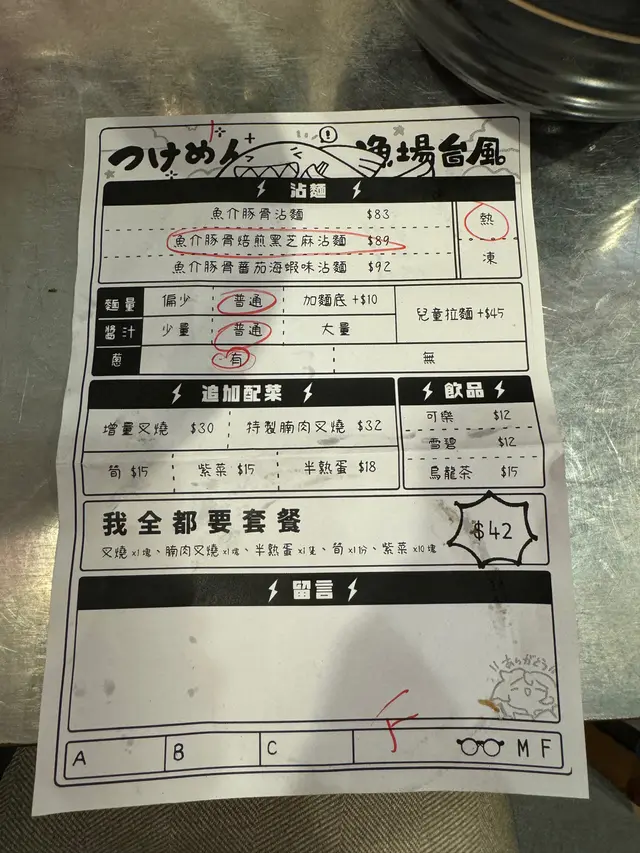 つけめん 漁場台風
沾麵
魚介豚骨沾麵 $83
熱
魚介豚骨焙煎黑芝麻沾麵 $89
魚介豚骨蕃茄海蝦味沾麵 $92
凍
麵量 偏少 普通 加麵底 +$10
兒童拉麵 +$45
醬汁 少量 普通 大量
蔥 有 無
追加配菜
飲品
增量叉燒 $30 特製腩肉叉燒 $32
可樂 $12
雪碧 $12
筍 $15 紫菜 $15 半熟蛋 $18
烏龍茶 $15
我全都要套餐
$42
叉燒x1塊、腩肉叉燒x1塊、半熟蛋x1隻、筍x1份、紫菜x10塊
留言
ありがとう!!
F
A B C M F